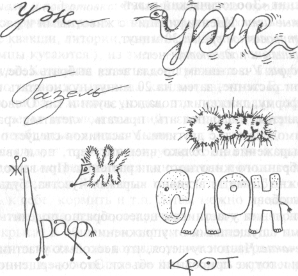 уж
уж
Газель
ёж
ёж
Жираф
СЛОН
КРОТ